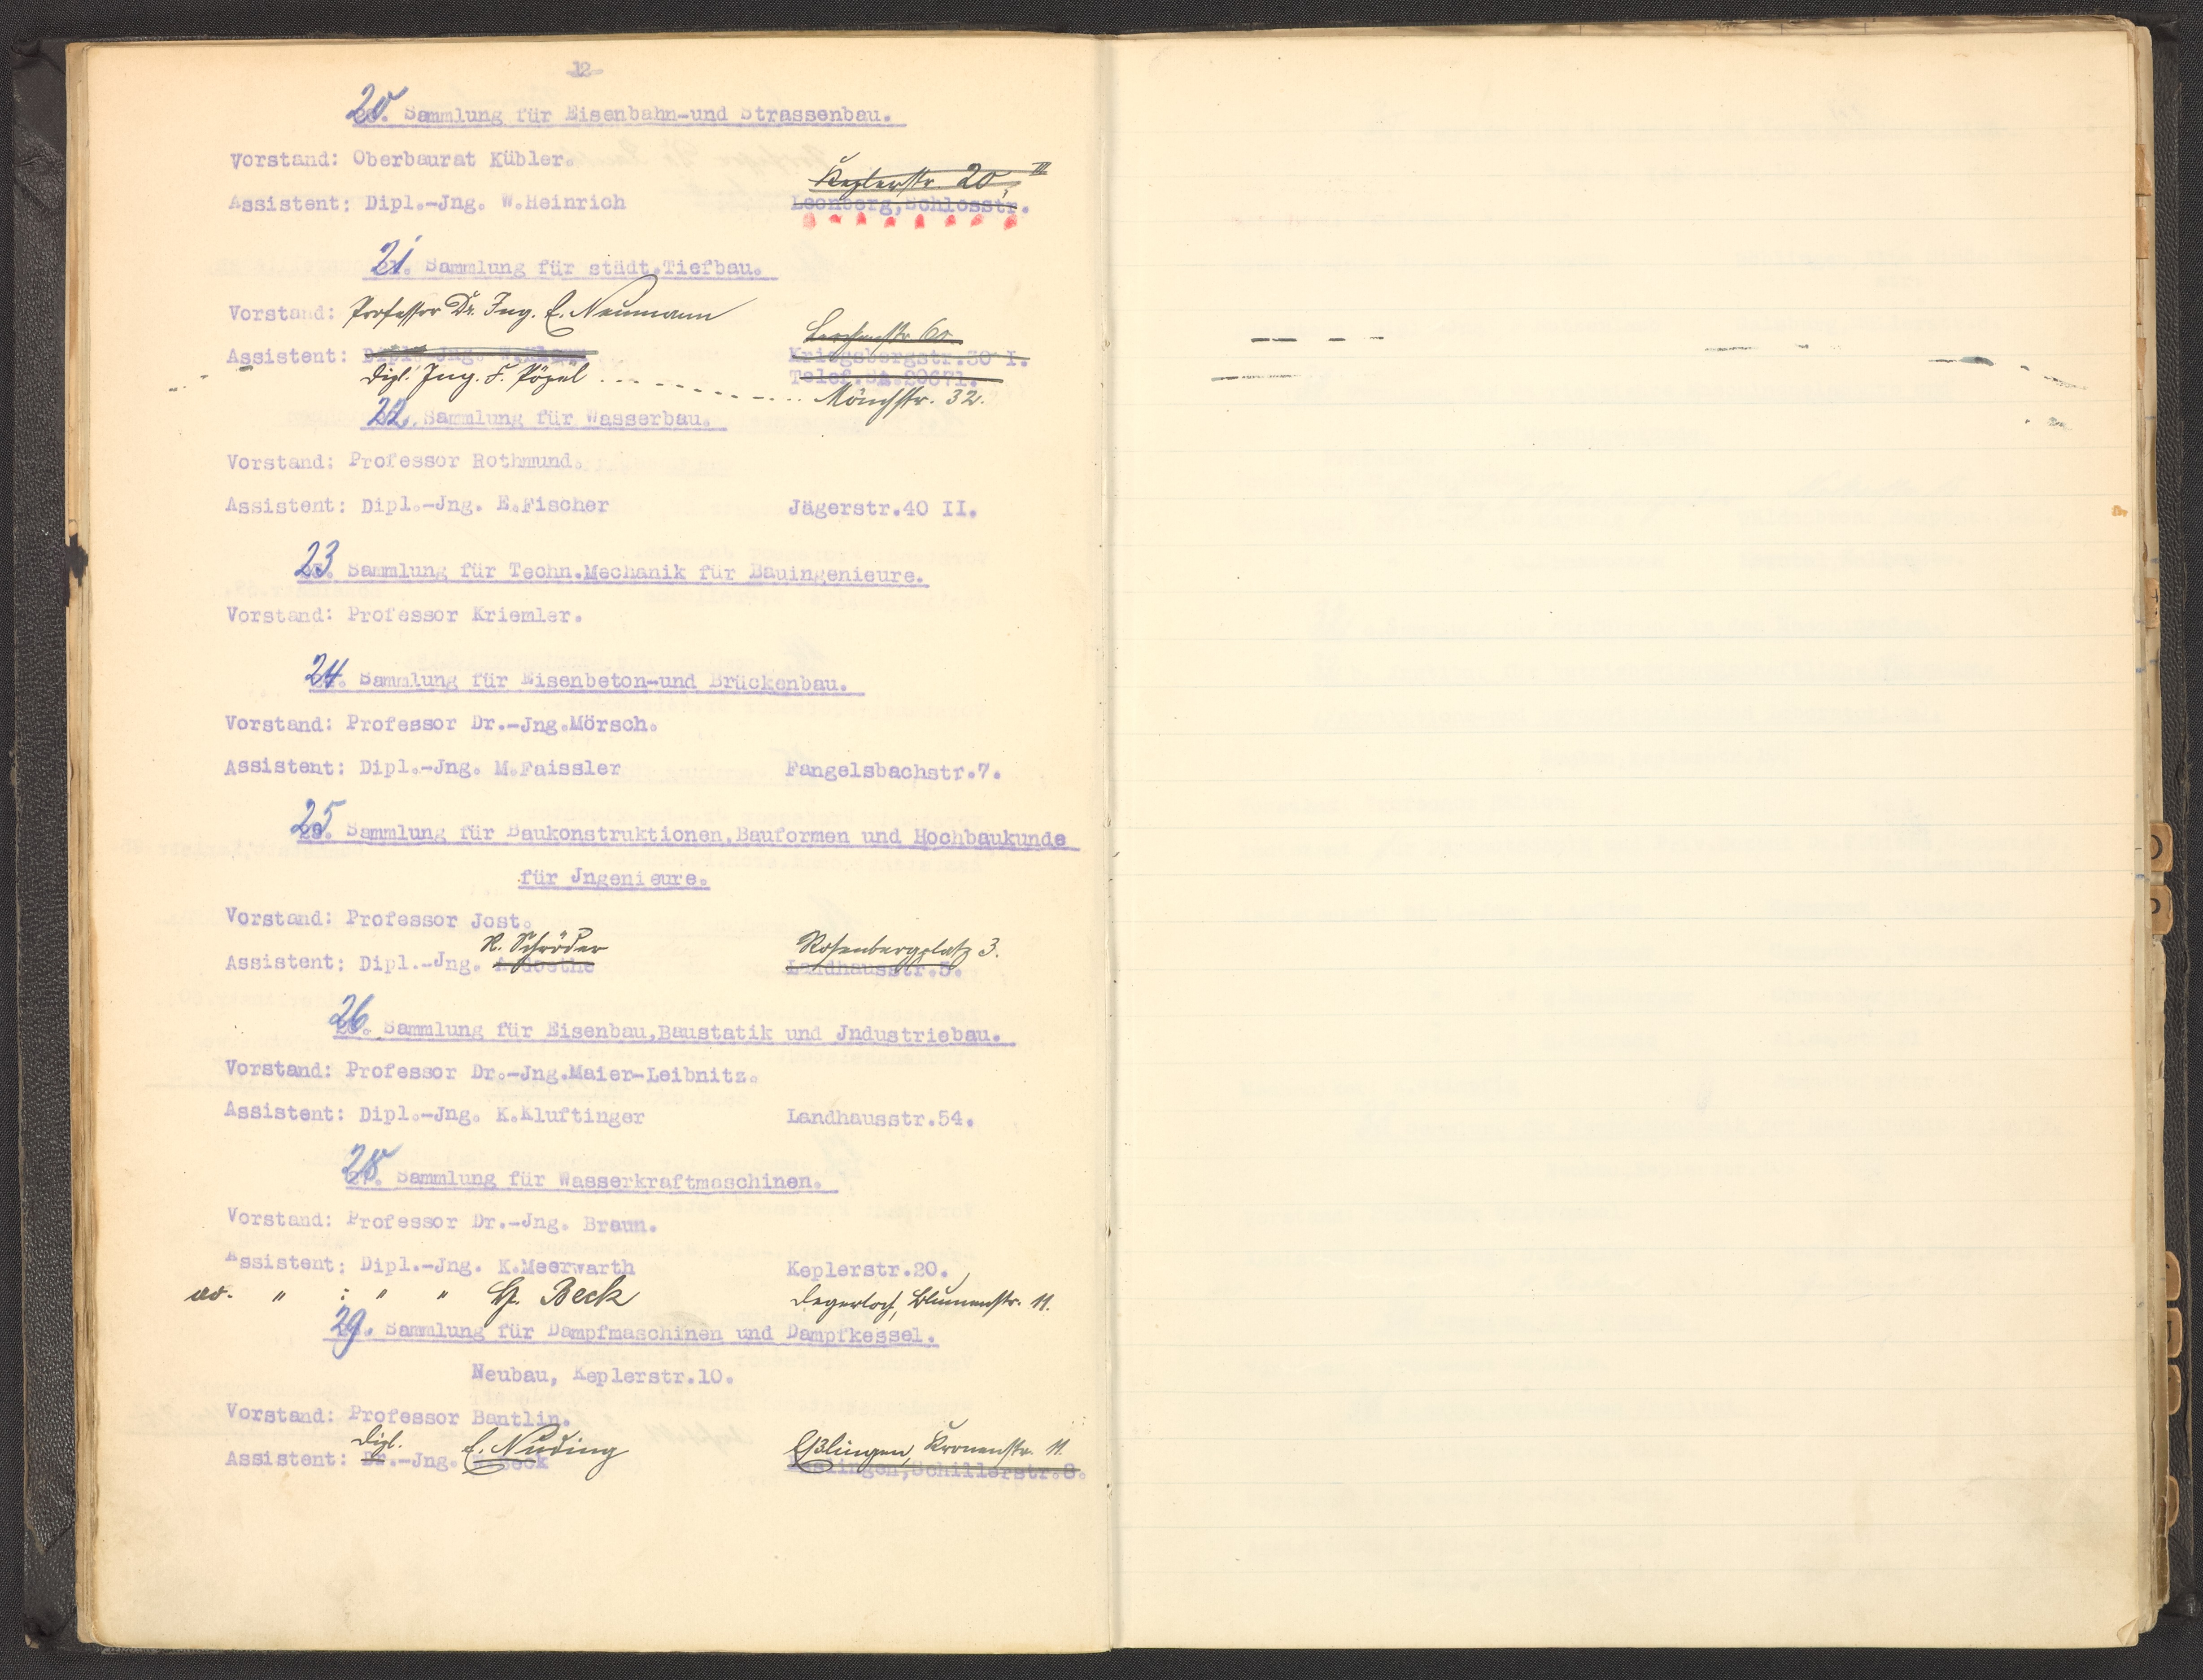 -12-
20. Sammlung für Eisenbahn-und Strassenbau.
Vorstand: Oberbaurat Kübler.
Keplerstr. 20, III
Assistent: Dipl.-Jng. W.Heinrich Leonberg,Schlosstr.
21. Sammlung für städt.Tiefbau.
Vorstand: Professor Dr. Ing. E. Neumann
Lerchenstr. 60
Assistent: Dipl.-Jng. W.Klemm Kriegsbergstr.30 I.
Telef.SA.20671.
Dipl. Ing. F. Pözel Mönchstr. 32.
22. Sammlung für Wasserbau.
Vorstand: Professor Rothmund.
Assistent: Dipl.-Jng. E.Fischer Jägerstr.40 II.
23. Sammlung für Techn.Mechanik für Bauingenieure.
Vorstand: Professor Kriemler.
24. Sammlung für Eisenbeton-und Brückenbau.
Vorstand: Professor Dr.-Jng.Mörsch.
Assistent: Dipl.-Jng. M.Faissler Fangelsbachstr.7.
25. Sammlung für Baukonstruktionen,Bauformen und Hochbaukunde
für Jngenieure.
Vorstand: Professor Jost.
R. Schröder Rosenbergplatz 3.
Assistent: Dipl.-Jng. A.Goethe Landhausstr.5.
26. Sammlung für Eisenbau,Baustatik und Jndustriebau.
Vorstand: Professor Dr.-Jng.Maier-Leibnitz.
Assistent: Dipl.-Jng. K.Kluftinger Landhausstr.54.
28. Sammlung für Wasserkraftmaschinen.
Vorstand: Professor Dr.-Jng. Braun.
Assistent: Dipl.-Jng. K.Meerwarth Keplerstr.20.
ao. " : " " G. Beck Degerloch, Blumenstr. 11.
29. Sammlung für Dampfmaschinen und Dampfkessel.
Neubau, Keplerstr.10.
Vorstand: Professor Bantlin.
Dipl. E. Nuding Eßlingen, Kronenstr. 11.
Assistent: Dr.-Jng. Beck Esslingen,Schillerstr.8.